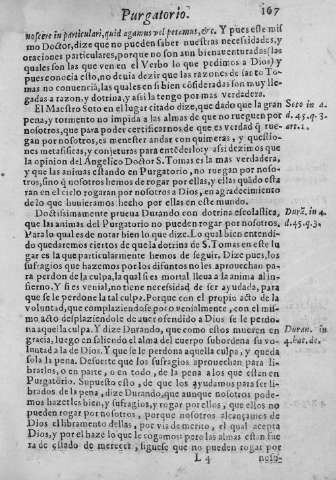 Purgatorio. 167
noscere in particulari, quid agamus vel petamus, &c. Y pues este mis
mo Doctor, dize que no pueden saber nuestras necessidades, y
oraciones particulares, porque no son aun bienaventuradas (las
quales son las que ven en el Verbo lo que pedimos a Dios) y
pues conocia esto, no devia dezir que las razones de santo To-
mas no convencia, las quales en si bien cósideradas son muy lle-
gadas a razon, y dotrina, y assi la tengo por mas verdadera.
El Maestro Soto en el lugar citado dize, que dado que la gran
Soto in 4.
pena, y tormento no impida a las almas de que no rueguen por
d. 45. q. 3.
nosotros, que para poder certificarnos de que es verdad q̃ rue-
art. 2.
gan por nosotros, es menester andar con quimeras, y questio-
nes metafisicas, y conjeturas para entédello: y assi dezimos que
la opinion del Angelico Doctor S. Tomas es la mas verdadera,
y que las animas estando en Purgatorio, no ruegan por noso-
tros, sino q̃ nosotros hemos de rogar por ellas, y ellas quádo esta
ran en el cielo rogaran por nosotros a Dios, en agradecimiento
de lo que huvieramos hecho por ellas en este mundo.
Doctissimamente prueva Durando con dotrina escolastica,
Durã. in 4.
que las animas del Purgatorio no pueden rogar por nosotros.
d. 45. q. 3.
Para lo qual es de notar bien lo que dize. Lo qual bien entendi-
do quedaremos ciertos de que la dotrina de S. Tomas en este lu
gar es la que particularmente hemos de seguir. Dize pues, los
sufragios que hazemos por los difuntos no les aprouechan pa-
ra perdon de la culpa, la qual si es mortal lleva a la anima al in-
fierno. Y si es venial, no tiene necessidad de ser ayudada, para
que se le perdone la tal culpa. Porque con el propio acto de la
voluntad, que complaziendose pecò venialmente, con el mis-
mo acto desplaziendole de aver ofendido a Dios se le perdo-
na aquella culpa. Y dize Durando, que como estos mueren en
Duran. in
gracia, luego en saliendo el alma del cuerpo subordena su vo-
luntad a la de Dios. Y que se le perdona aquella culpa, y queda
sola la pena. Desuerte que los sufragios aprovechan para li-
brarlos, o en parte, o en todo, de la pena a los que estan en
Purgatorio. Supuesto esto, de que los ayudamos para ser li-
brados de la pena, dize Durando, que aunque nosotros pode-
mos hazerles bien, y sufragios, y rogar por ellos, que ellos no
pueden rogar por nosotros, porque nosotros alcançamos de
Dios el libramento dellas, por via de merito, el qual acepta
Dios, y por el haze lo que le rogamos: pero las almas estan fue
ra de estado de merecer, siguese que no pueden rogar por
L 4 noso-